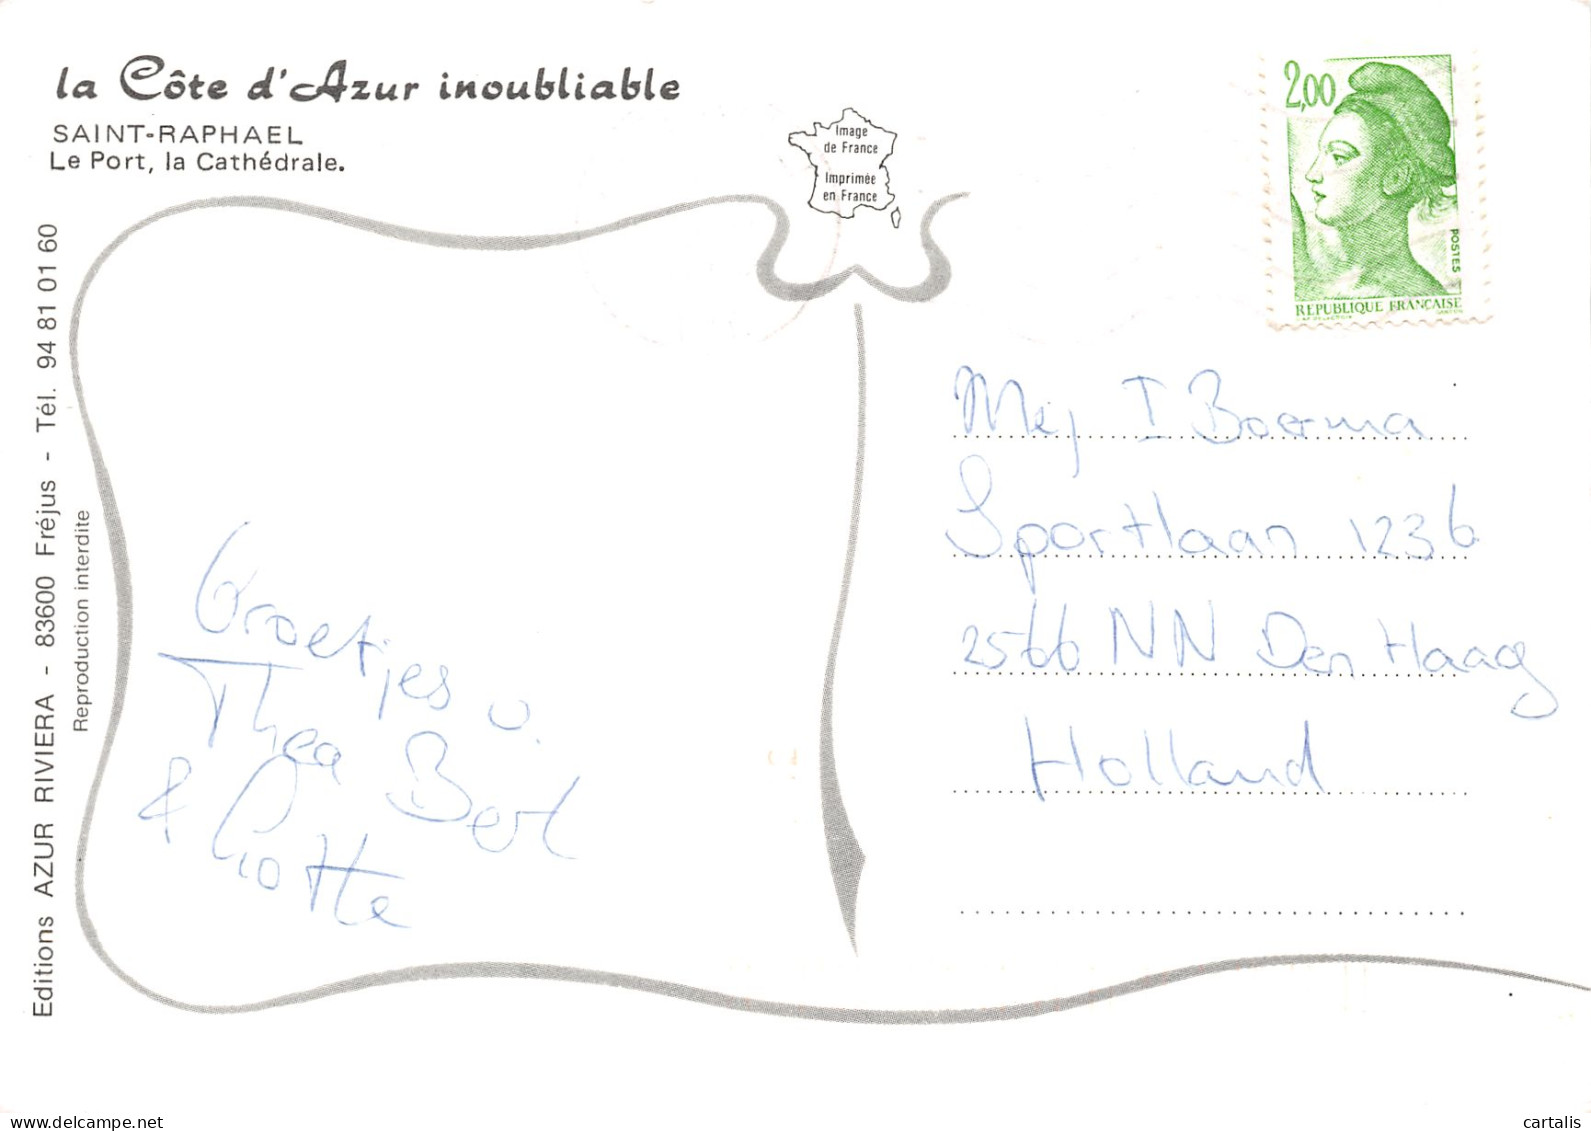 la Côte d'Azur inoubliable
SAINT-RAPHAEL
Le Port, la Cathédrale.
Image
de France
Imprimée
en France
2,00
POSTES
REPUBLIQUE FRANÇAISE
Editions AZUR RIVIERA - 83600 Fréjus - Tél. 94 81 01 60
Reproduction interdite
Groetjes v.
Thea Bert
& Lotte
Mej I Boerma
Sportlaan 1236
2566 NN Den Haag
Holland
delcampe.net
cartalis